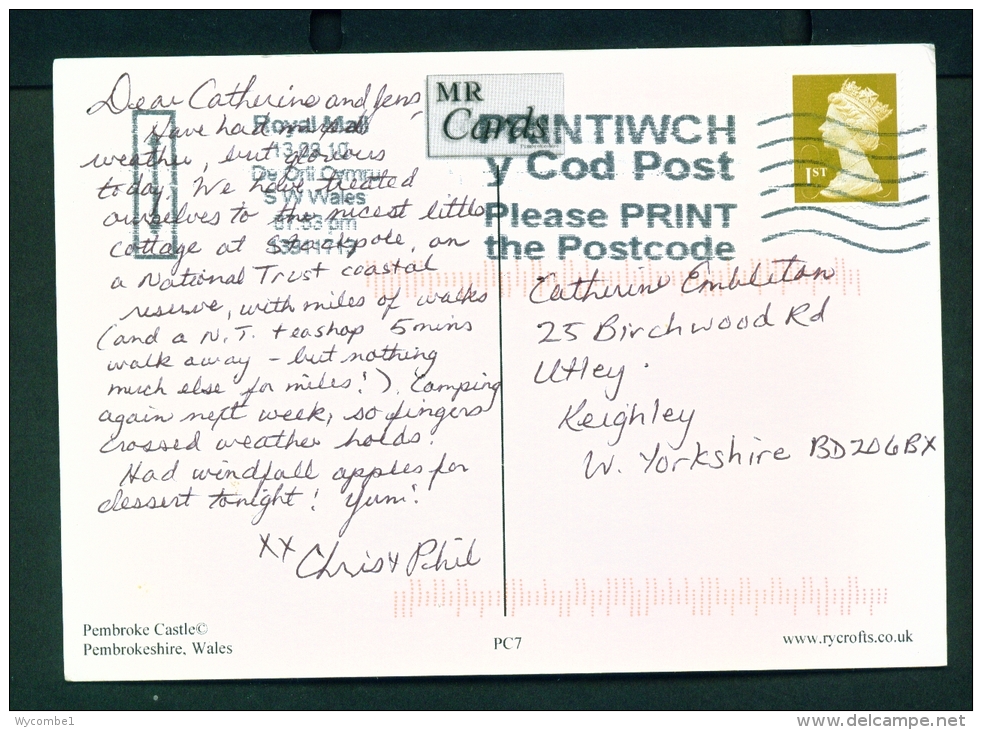 Dear Catherine and Jens,
Have had mixed
weather, but glorious
today. We have treated
ourselves to the nicest little
cottage at Stackpole, on
a National Trust coastal
reserve, with miles of walks
(and a N.T. teashop 5 mins
walk away – but nothing
much else for miles!). Camping
again next week, so fingers
crossed weather holds!
Had windfall apples for
dessert tonight! Yum!
XX Chris & Phil
MR
Cards
Royal Mail
13.09.10
De Orll Cymru
S W Wales
07:53 pm
PRINTIWCH
y Cod Post
Please PRINT
the Postcode
1ST
Catherine Embleton
25 Birchwood Rd
Utley.
Keighley
W. Yorkshire BD20 6BX
Pembroke Castle©
Pembrokeshire, Wales
PC7
www.rycrofts.co.uk
Wycombe1
www.delcampe.net